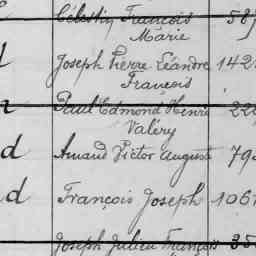 Célestin François 58
Marie
Joseph Pierre Léandre 142
François
Paul Edmond Henri 22
Valéry
d Amand Victor Auguste 79
d François Joseph 106
Joseph Julien François 35